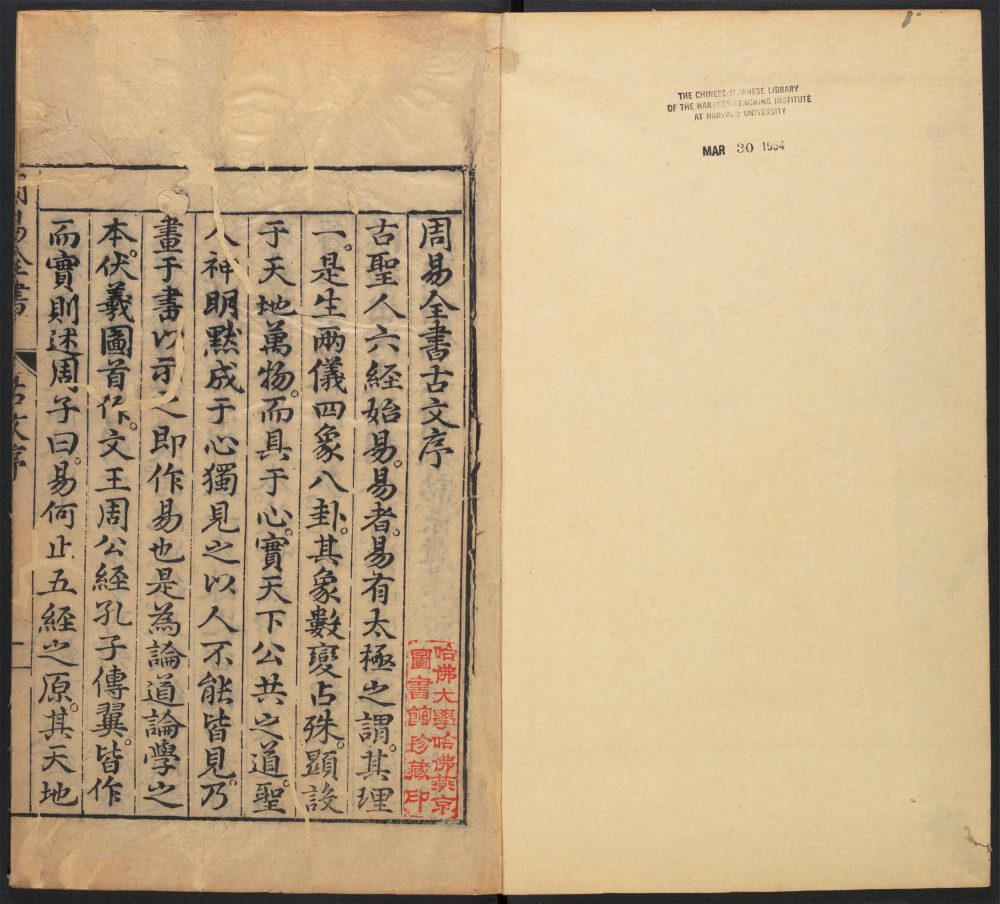 THE CHINESE-JAPANESE LIBRARY
OF THE HARVARD-YENCHING INSTITUTE
AT HARVARD UNIVERSITY
MAR 30 1934
周易全書古文序
哈佛大學哈佛燕京
圖書館珍藏印
古聖人六經始易。易者。易有太極之謂。其理
一。是生兩儀四象八卦。其象數變占殊。顯設
于天地萬物。而具于心。實天下公共之道。聖
人神明默成于心獨見之以人不能皆見。乃
畫于書以示之即作易也是為論道論學之
本。伏羲圖首作。文王周公經孔子傳翼。皆作
而實則述周子曰。易何止五經之原。其天地
周易全書 古文序 一